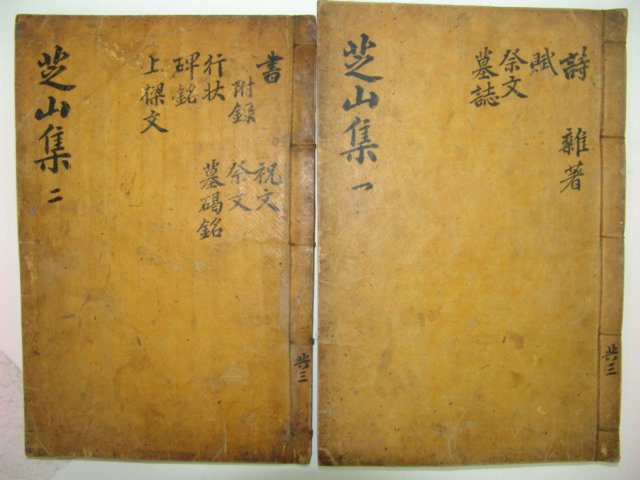 共三
詩 雜著
賦
祭文
墓誌
芝山集 一
共三
書 祝文
附錄 祭文
行状 墓碣銘
碑銘
上樑文
芝山集 二